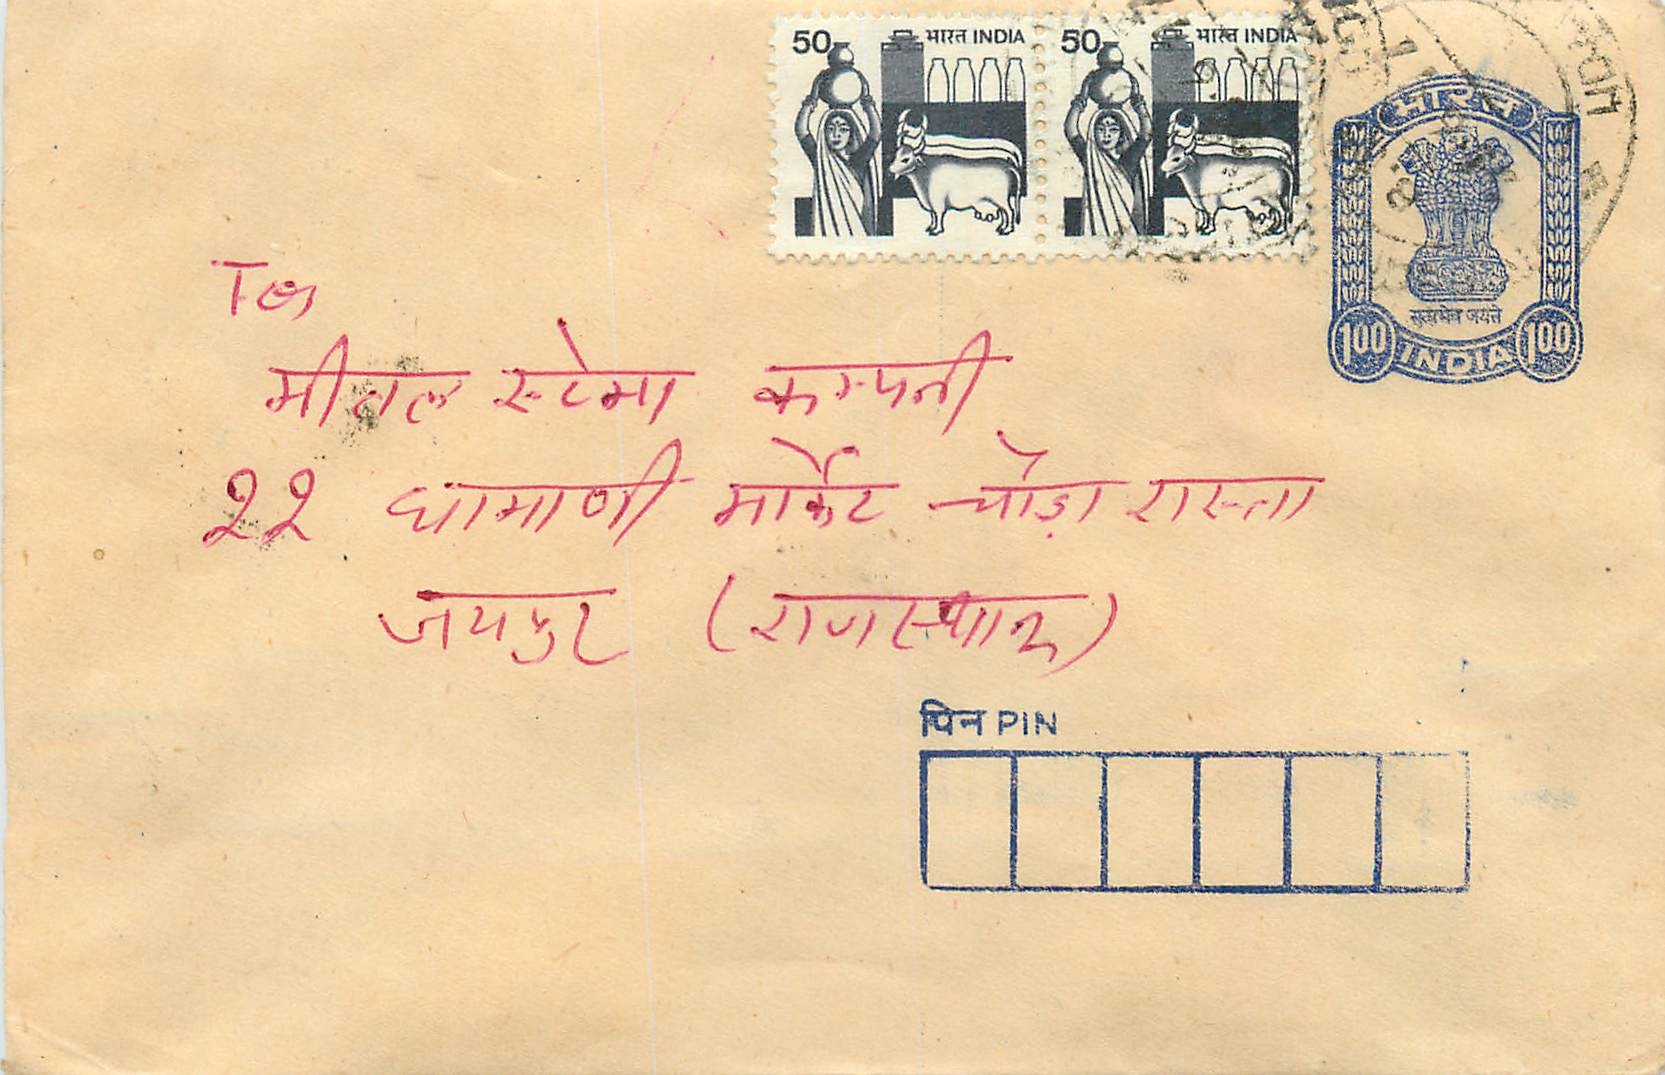 50 भारत INDIA 50 भारत INDIA
भारत
सत्यमेव जयते
1.00 INDIA 1.00
To
मीतल स्टेम्प कम्पनी
२२ धामाणी मार्केट चौड़ा रास्ता
जयपुर (राजस्थान)
पिन PIN